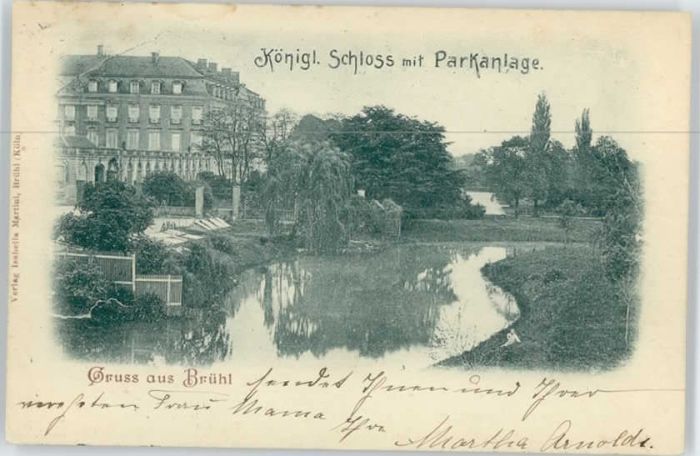 Königl. Schloss mit Parkanlage.
Verlag Isabella Martini, Brühl (Köln)
Gruss aus Brühl
sendet Ihnen und Ihrer
verehrten Frau Mama Ihre Martha Arnolds.